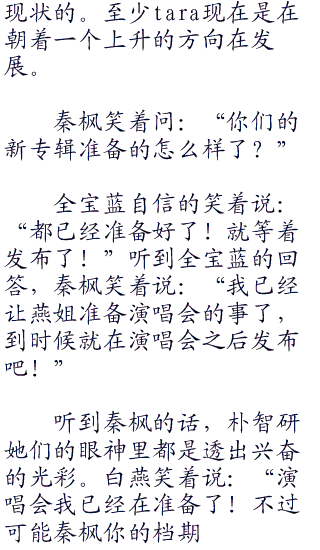 现状的。至少tara现在是在
朝着一个上升的方向在发
展。
秦枫笑着问：“你们的
新专辑准备的怎么样了？”
全宝蓝自信的笑着说：
“都已经准备好了！就等着
发布了！”听到全宝蓝的回
答，秦枫笑着说：“我已经
让燕姐准备演唱会的事了，
到时候就在演唱会之后发布
吧！”
听到秦枫的话，朴智研
她们的眼神里都是透出兴奋
的光彩。白燕笑着说：“演
唱会我已经在准备了！不过
可能秦枫你的档期